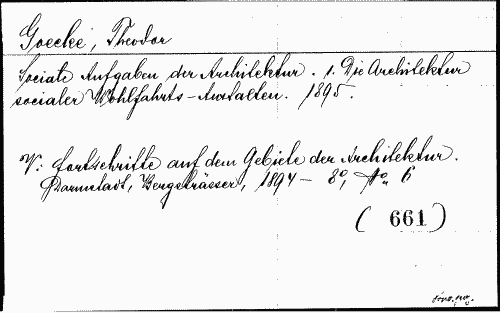 Goecke, Theodor
Sociale Aufgaben der Architektur. 1. Die Architektur
socialer Wohlfahrts-Anstalten. 1895.
V: Fortschritte auf dem Gebiete der Architektur.
Darmstadt, Bergsträsser, 1894 – 8º, Nº 6
(661)